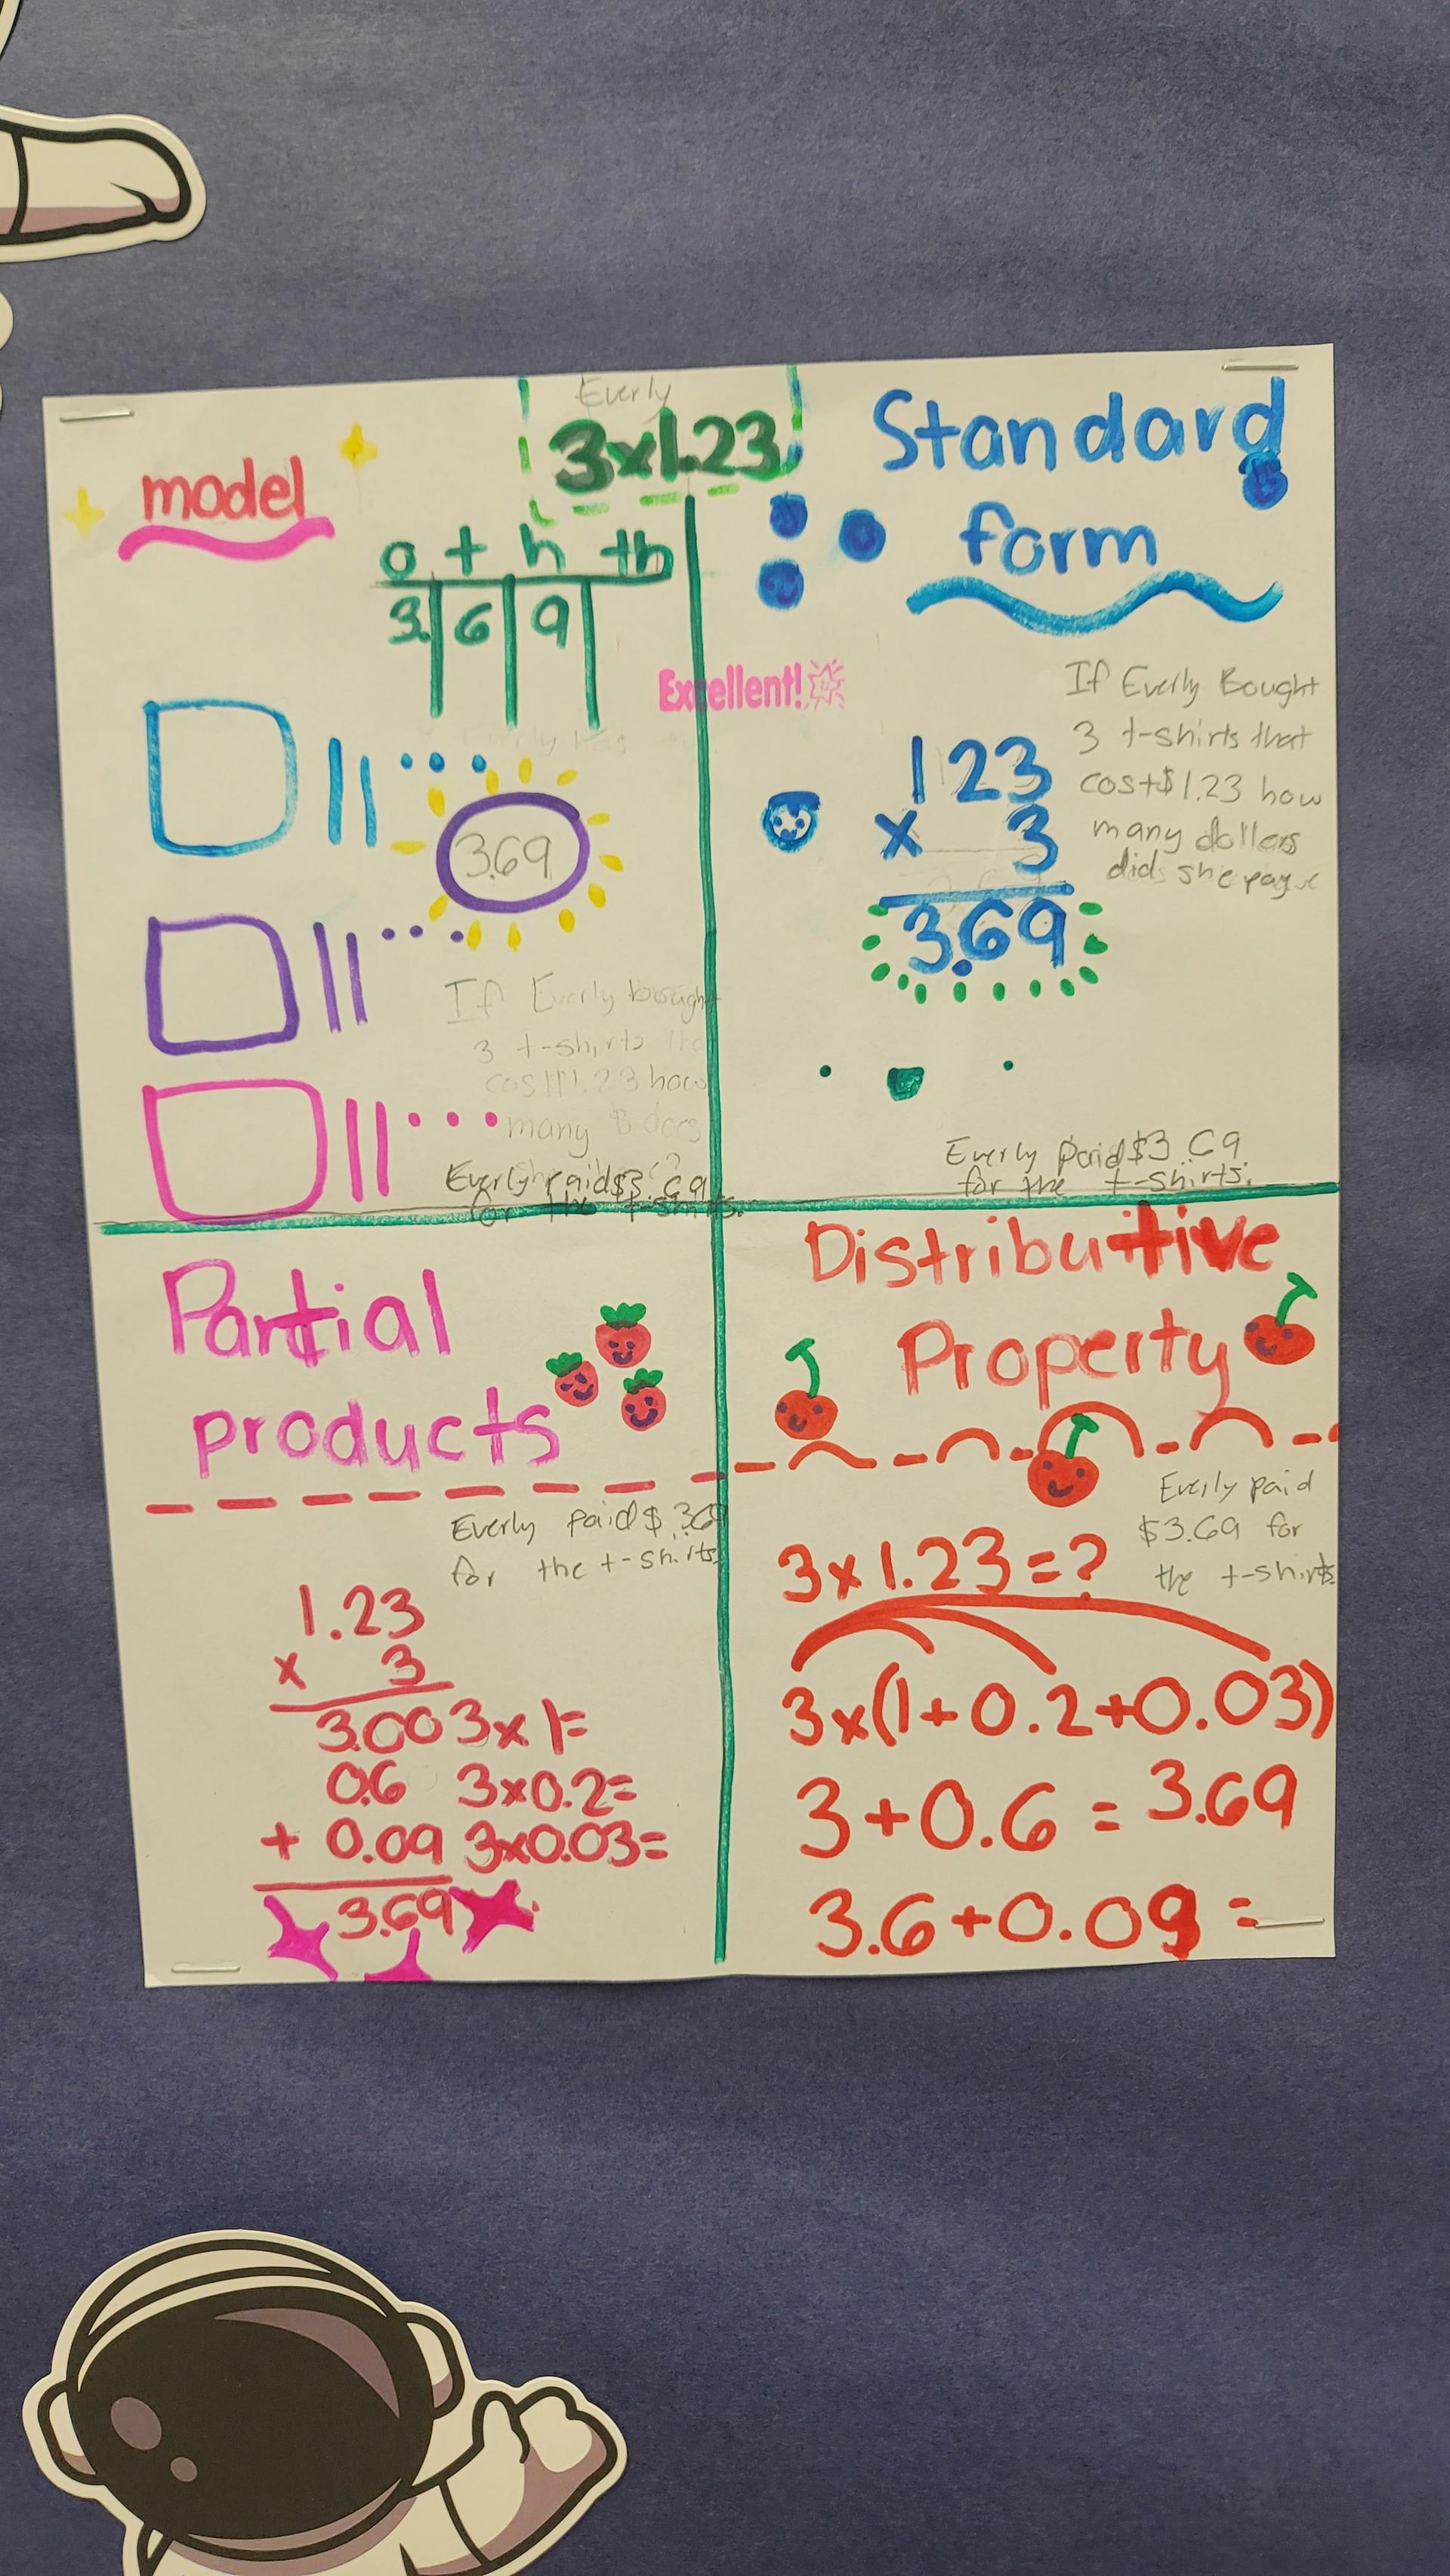 Everly
3x1.23
model
o t h th
3. 6 9
3.69
If Everly bought
3 t-shirts
cost 1.23 how
many $ does
Everly paid $3.69
for the t-shirts.
Standard
form
Excellent!
If Everly Bought
3 t-shirts that
cost $1.23 how
many dollars
did she paye
123
x 3
3.69
Everly paid $3.69
for the t-shirts.
Partial
products
Everly paid $3.69
for the t-shirts
1.23
x 3
3.00 3x1=
0.6 3x0.2=
+ 0.09 3x0.03=
3.69
Distributive
Property
Everly paid
$3.69 for
the t-shirts.
3x1.23=?
3x(1+0.2+0.03)
3+0.6=3.69
3.6+0.09=